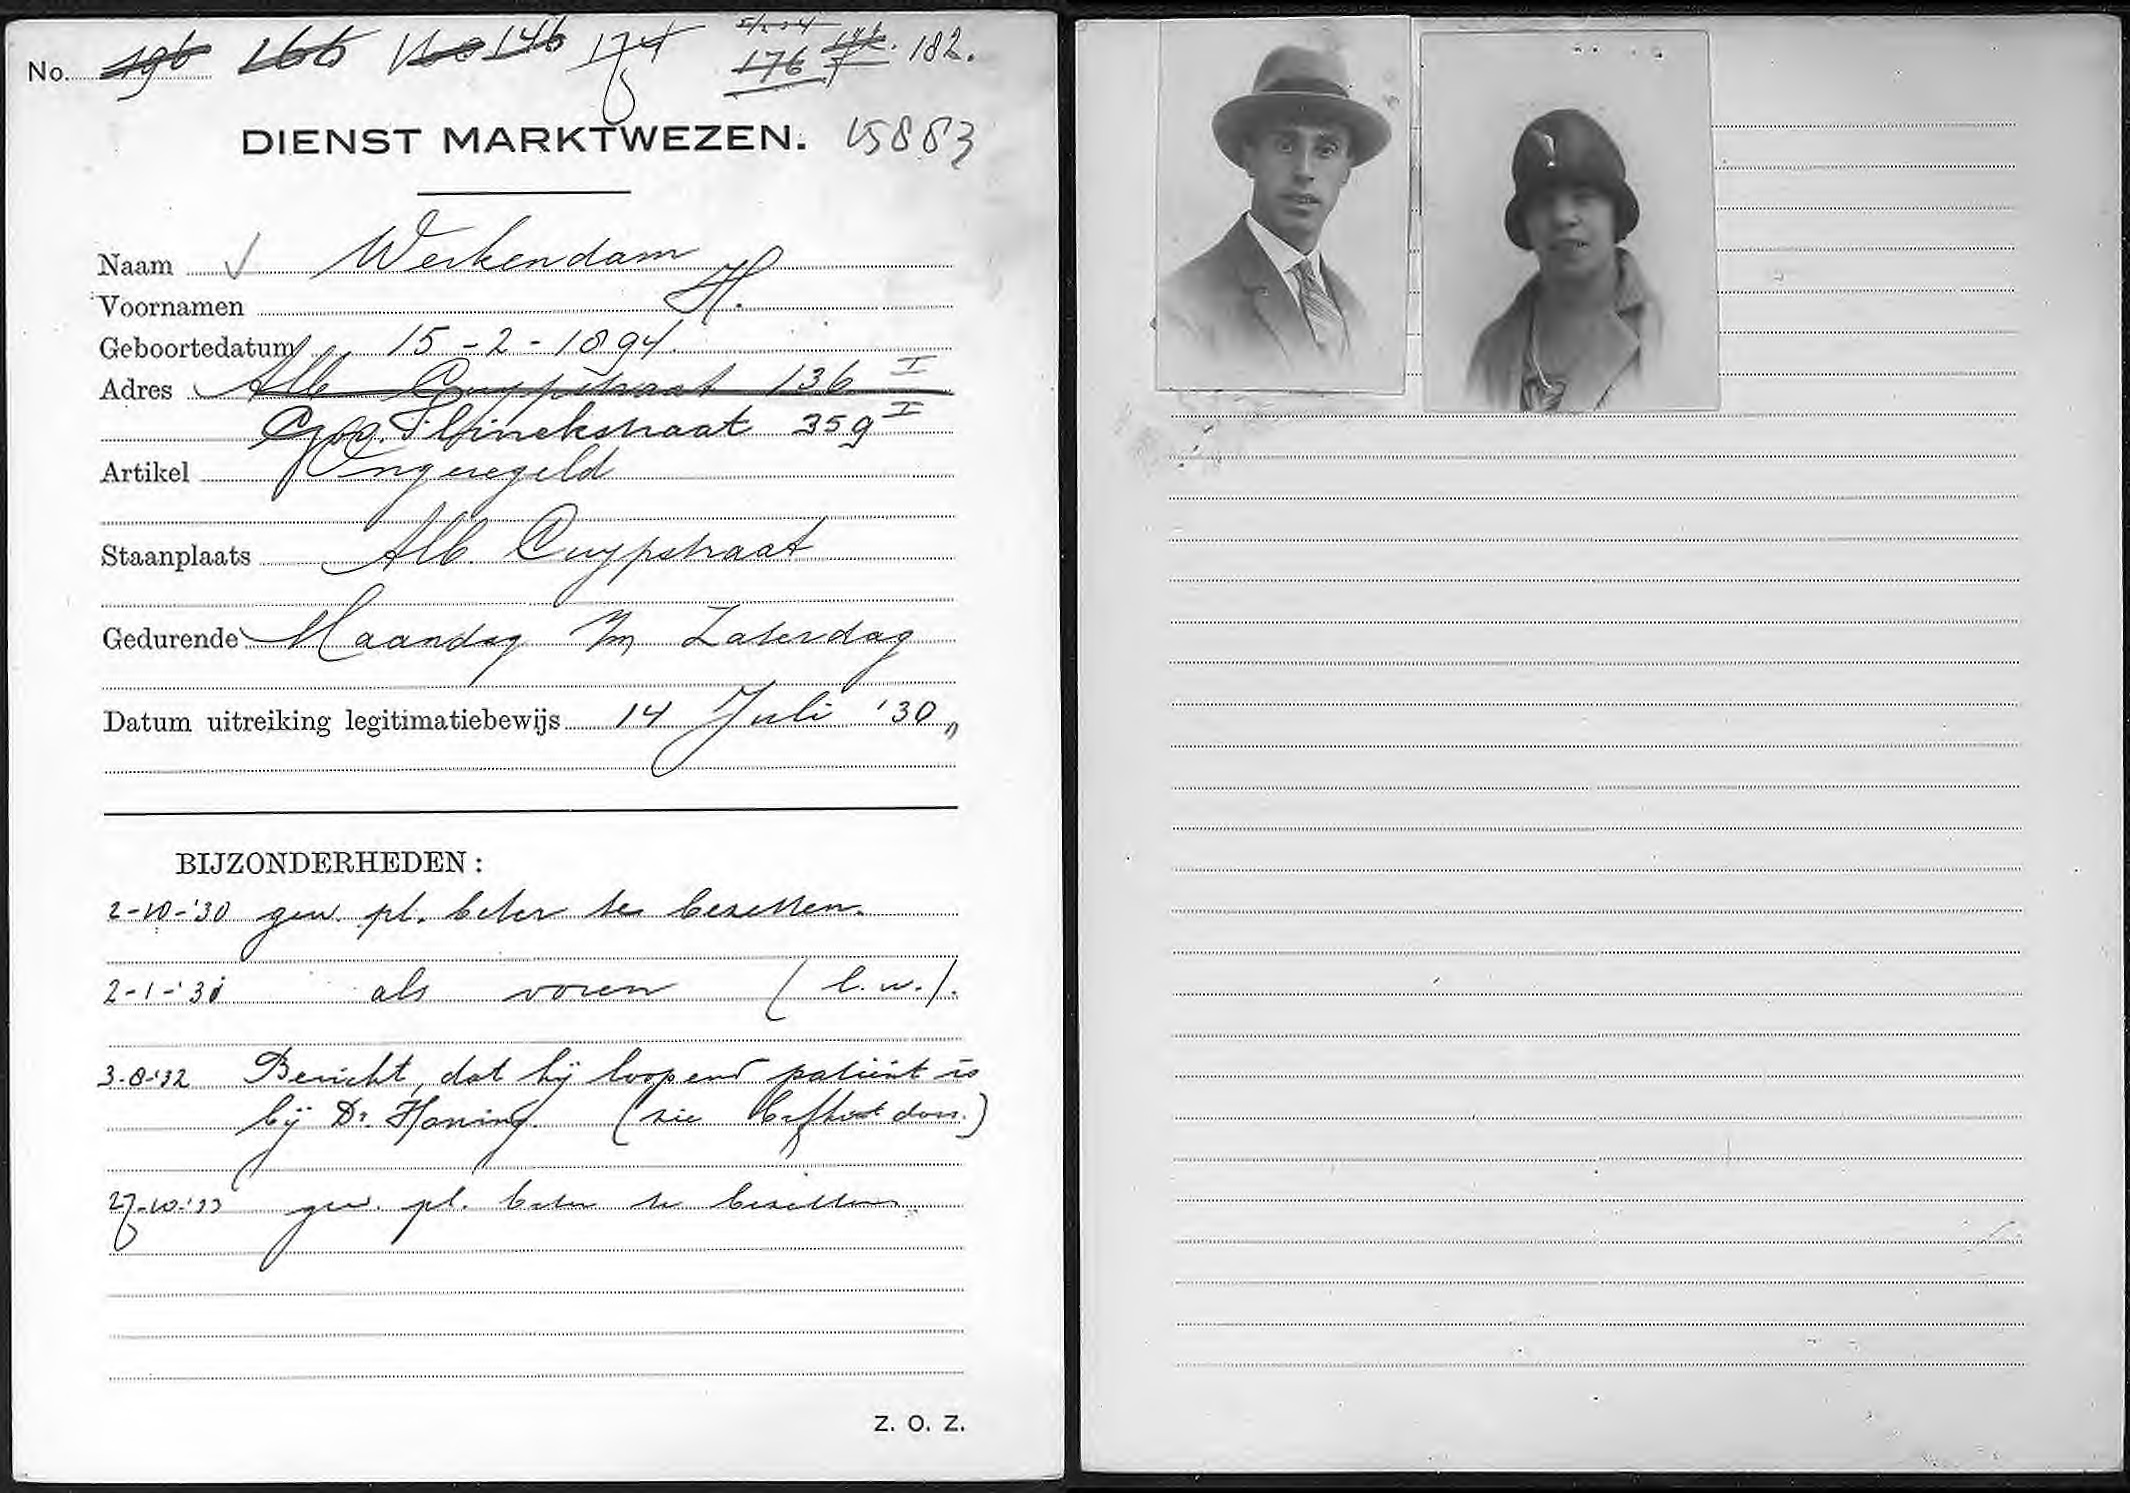 No. 196 266 146 174 176 182.
DIENST MARKTWEZEN. 15883
Naam Werkendam
Voornamen H.
Geboortedatum 15-2-1894.
Adres Alb Cuypstraat 136 I
Gov. Flinckstraat 359 I
Artikel Ongeregeld
Staanplaats Alb. Cuypstraat
Gedurende Maandag t/m Zaterdag
Datum uitreiking legitimatiebewijs 14 Juli '30
BIJZONDERHEDEN:
2-10-'30 gew. pl. beter te bezetten.
2-1-'31 als voren (l.w.).
3-8-'32 Bericht, dat hij loopend patiënt is
bij Dr. Honing. (zie doss.)
27-10-'33 gew. pl. beter te bezetten
Z. O. Z.